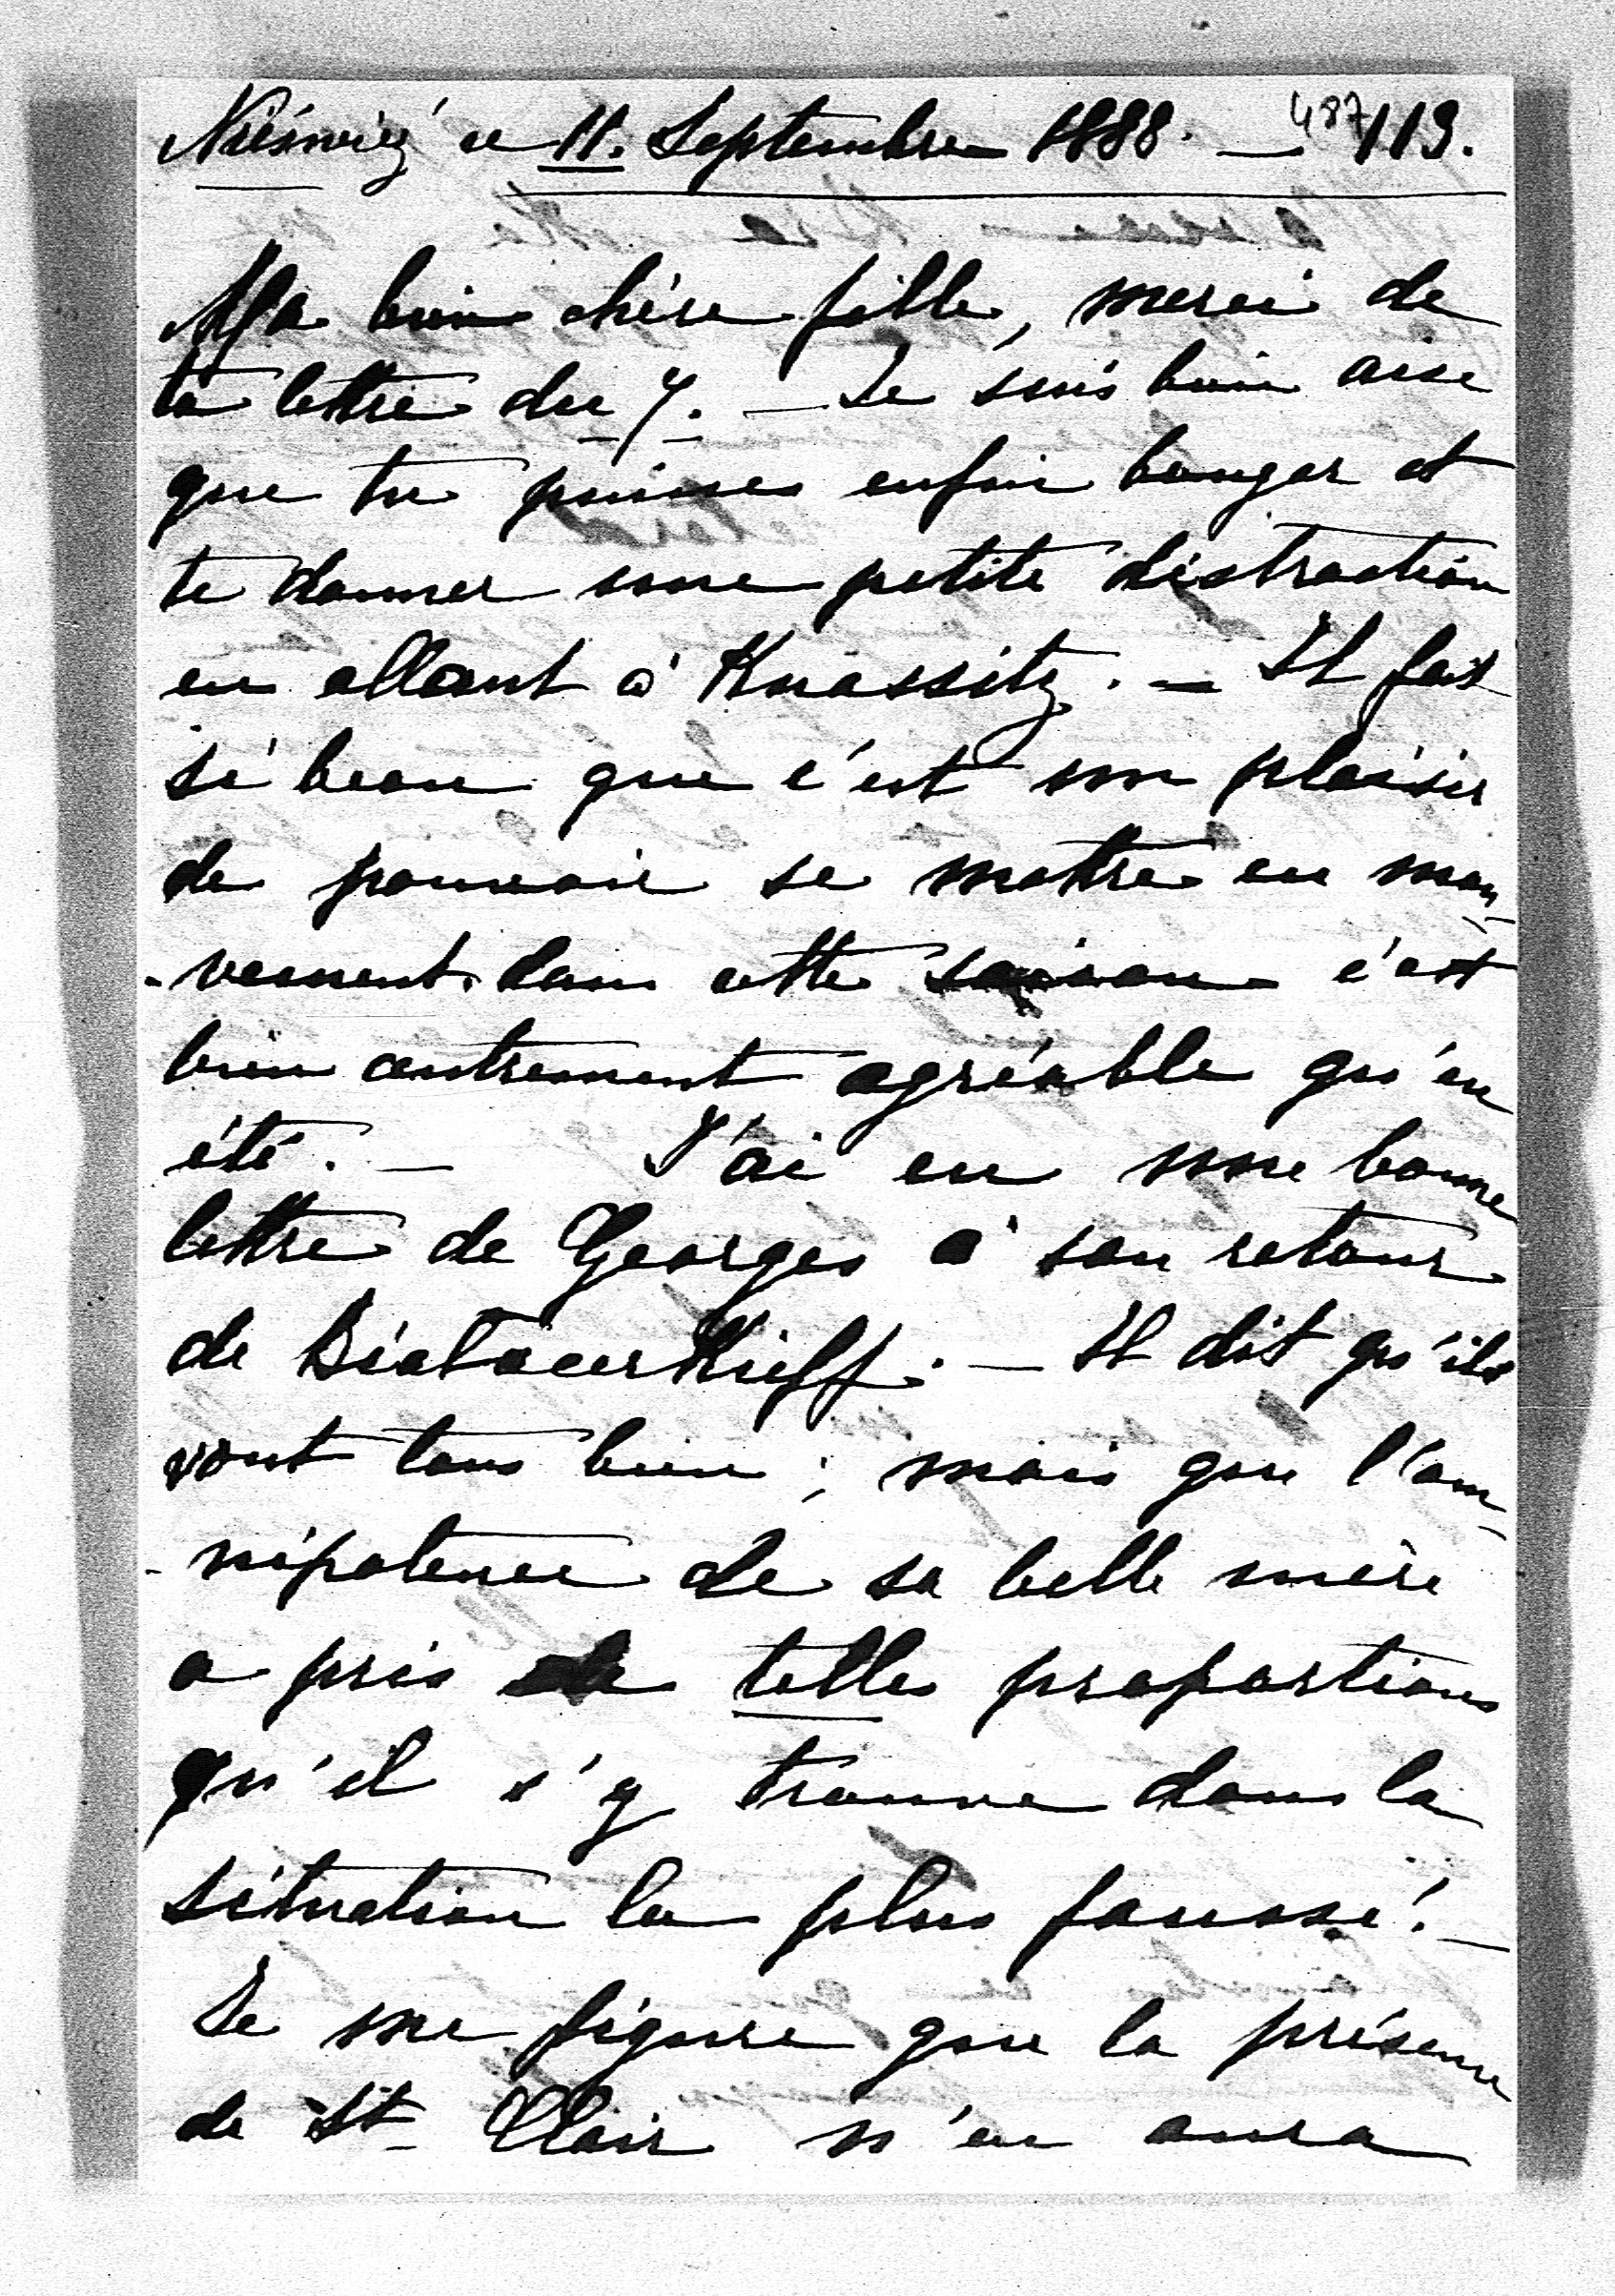 Nieśwież ce 11. Septembre 1888. — 487 119.
Ma bien chère fille, merci de
ta lettre du 7. — Je suis bien aise
que tu puisses enfin bouger et
te donner une petite distraction
en allant à Krassitz. — Il fait
si beau que c'est un plaisir
de pouvoir se mettre en mou-
-vement. dans cette saison c'est
bien autrement agréable qu'en
été. — J'ai eu une bonne
lettre de Georges à son retour
de Białocerkieff. — Il dit qu'ils
vont tous bien ; mais que l'om-
-nipotence de sa belle mère
a pris de telles proportions
qu'il s'y trouve dans la
situation la plus fausse! —
Je me figure que la présence
de St Clair n'en aura